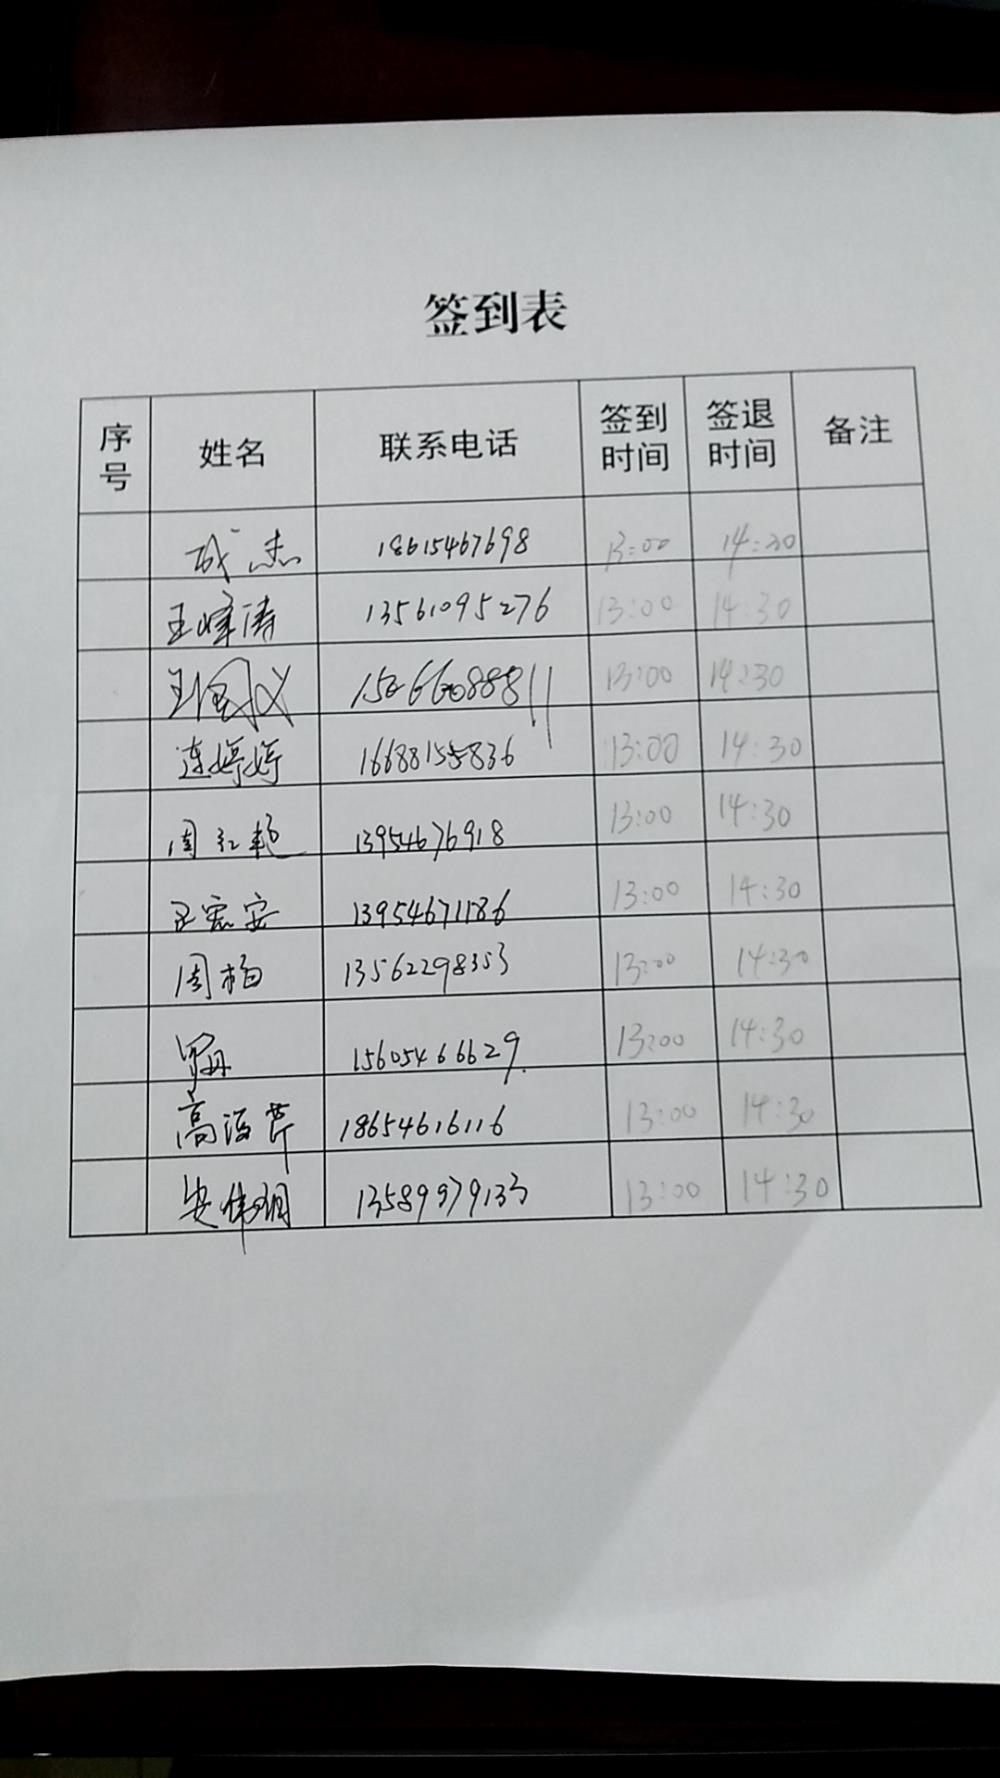 签到表
序号 姓名 联系电话 签到时间 签退时间 备注
成杰 18615467698 13:00 14:30
王峰涛 13561095276 13:00 14:30
王国义 15266088811 13:00 14:30
连婷婷 16688155836 13:00 14:30
周红艳 13954676918 13:00 14:30
王宏安 13954671186 13:00 14:30
周杨 13562298353 13:00 14:30
15605466629 13:00 14:30
高海芹 18654616116 13:00 14:30
安伟明 13589979133 13:00 14:30